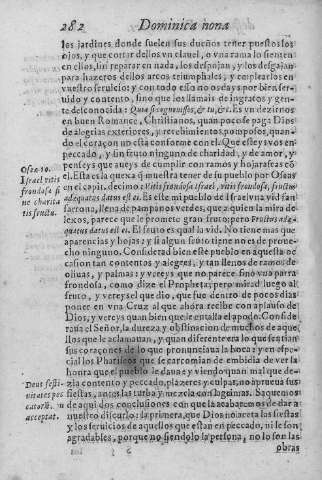 282 Dominica nona
los jardines donde suelen sus dueños tener puestos los
ojos, y que cortar dellos vn clauel, o vna rama lo sienten
en ellos, sin reparar en nada, los desfloran, y los desgajan
para hazeros dellos arcos triumphales, y emplearlos en
vuestro seruicio: y con todo esso no os days por bien ser-
uido y contento, sino que los llamais de ingratos y gente
desconocida: Quia si cognouisses, & tu, &c. Es vn dezirnos
en buen Romance, Christianos, quan poco se paga Dios
de alegrias exteriores, y recebimientos pomposos, quan-
do el coraçon no està conforme con el. Que esteys vos en
peccado, y sin fruto ninguno de charidad, y de amor, y
penseys que aueys de cumplir con ramos y hojarascas cõ
el. Esta es la quexa q̃ muestra tener de su pueblo por Oseas
en el capit. decimo: Vitis frondosa Israel, vitis frondosa, fructus
adæquatus datus est ei. Es este mi pueblo de Israel vna vid fan
farrona, llena de pampanos verdes, que a quien la mira de
lexos, parece que le promete gran fruto: pero Fructus adæ-
quatus datus est ei. El fruto es qual la vid. No tiene mas que
aparencias y hojas: y si algun fruto tiene no es de proue-
cho ninguno. Considerad bien esse pueblo en aquesta oc
casion tan contentos y alegres, y tan llenos de ramos de
oliuas, y palmas: y vereys que no parece sino vna parra
frondosa, como dize el Propheta: pero mirad luego al
fruto, y vereys el que dio, que fue dentro de pocos dias
poner en vna Cruz al que ahora recibe con aplauso de
Dios, y vereys quan bien que le entalla el apodo. Conside
raua el Señor, la dureza y obstinacion de muchos de aque
llos que le aclamauan, y quan diferente era lo que sentian
sus coraçones de lo que pronunciaua la boca: y en espe-
cial los Phariseos que se carcomian de embidia de ver la
honra que el pueblo le daua: y viendo quan mal que de-
zia contento y peccado, plazeres y culpas, no aprueua sus
fiestas, antes las turba y mezcla con lagrimas. Saquemos
de aqui dos conclusiones con que la acabaremos de dar a
nuestro discurso: la primera, que Dios no aceta las fiestas
y los seruicios de aquellos que estan en peccado, ni le son
agradables, porque no siendolo la persona, no lo son las
obras
Oseæ 10.
Israel vitis
frondosa si
ne charita
tis fructu.
Deus festi-
uitates pec
catorũ nõ
acceptat.